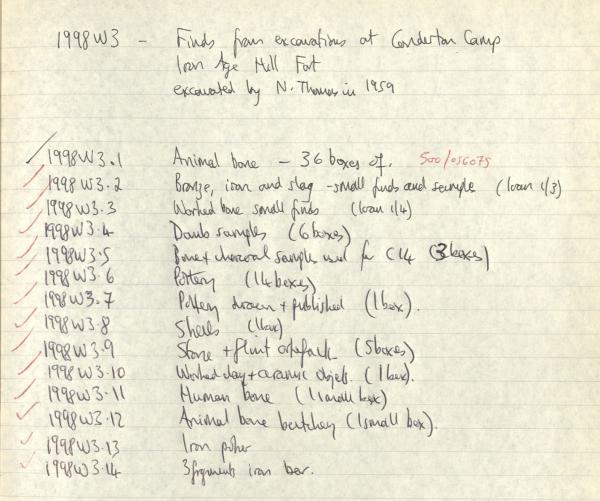 1998W3 - Finds from excavations at Conderton Camp
Iron Age Hill Fort
excavated by N. Thomas in 1959
1998W3.1 Animal bone - 36 boxes of. 500/056075
1998W3.2 Bronze, iron and slag - small finds and sample (loan 1/3)
1998W3.3 Worked bone small finds (loan 1/4)
1998W3.4 Daub samples (6 boxes)
1998W3.5 Bone + charcoal samples used for C14 (3 boxes)
1998W3.6 Pottery (14 boxes)
1998W3.7 Pottery drawn + published (1 box).
1998W3.8 Shells (1 box)
1998W3.9 Stone + flint artefacts (5 boxes)
1998W3.10 Worked clay + ceramic objects. (1 box).
1998W3.11 Human bone (1 small box)
1998W3.12 Animal bone butchery (1 small box).
1998W3.13 Iron poker
1998W3.14 3 fragments iron bar.